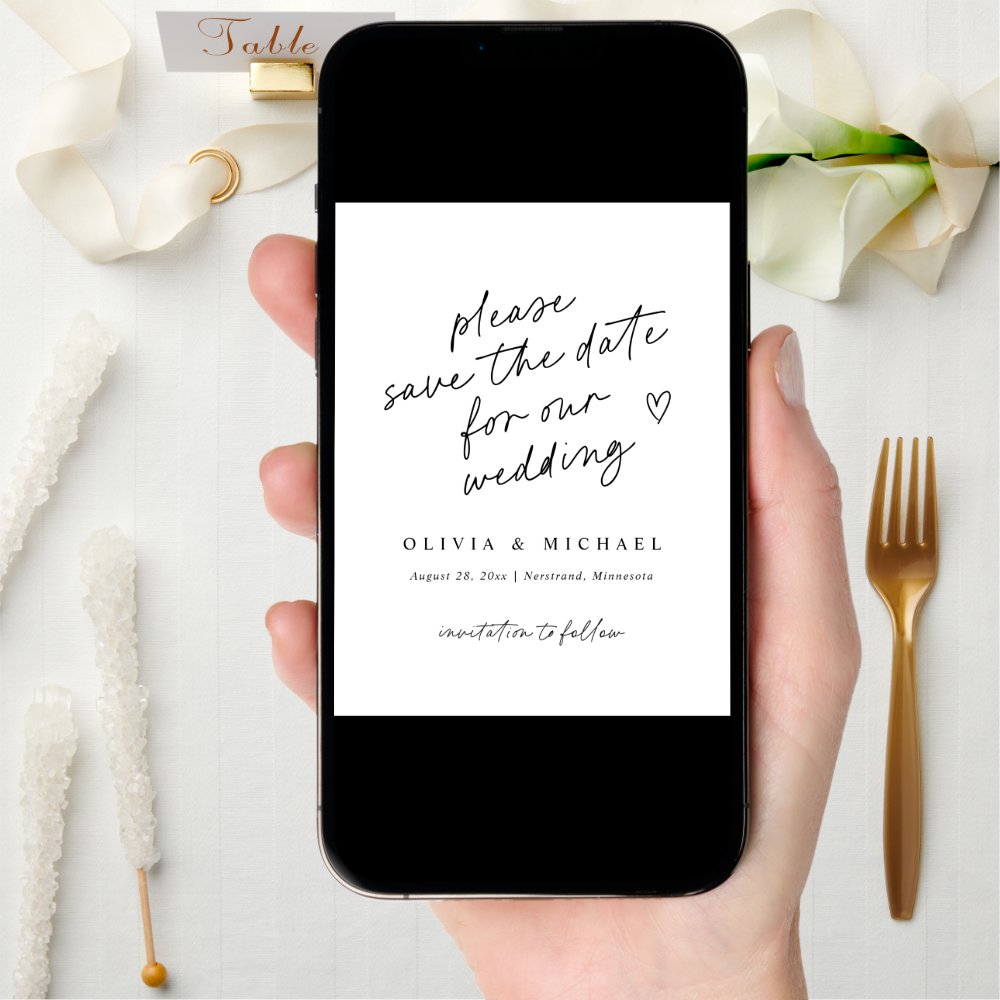 Table
please
save the date
for our
wedding
OLIVIA & MICHAEL
August 28, 20xx | Nerstrand, Minnesota
invitation to follow